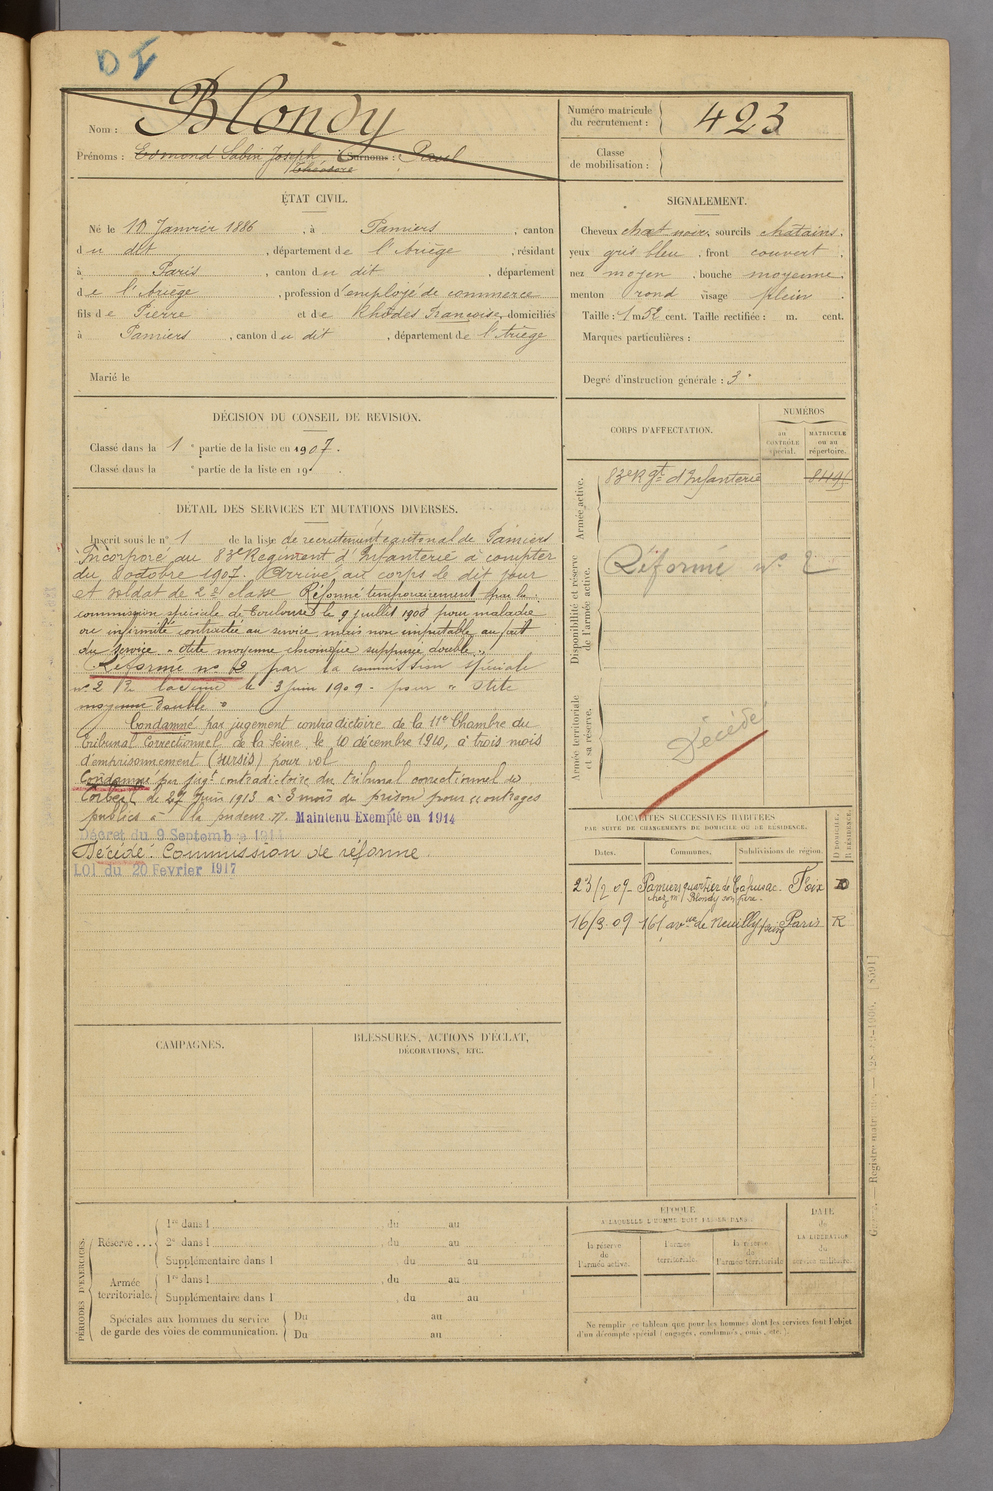 DI
Nom : Blondy
Prénoms : Edmond Sabin Joseph Surnoms : Paul
Théodore
Numéro matricule
du recrutement : 423
Classe
de mobilisation :
ÉTAT CIVIL.
Né le 10 Janvier 1886, à Pamiers, canton
du dit, département de l'Ariège, résidant
à Paris, canton du dit, département
de l'Ariège, profession d'employé de commerce
fils de Pierre et de Rhodes Françoise, domiciliés
à Pamiers, canton du dit, département de l'Ariège
Marié le
SIGNALEMENT.
Cheveux chat noir, sourcils chatains,
yeux gris bleu, front couvert,
nez moyen, bouche moyenne,
menton rond visage plein.
Taille : 1 m 52 cent. Taille rectifiée : m. cent.
Marques particulières :
Degré d'instruction générale : 3
DÉCISION DU CONSEIL DE REVISION.
Classé dans la 1e partie de la liste en 1907.
Classé dans la e partie de la liste en 19 .
DÉTAIL DES SERVICES ET MUTATIONS DIVERSES.
Inscrit sous le n° 1 de la liste de recrutement cantonal de Pamiers
Incorporé au 83e Régiment d'Infanterie à compter
du 8 octobre 1907. Arrivé au corps le dit jour
et soldat de 2e classe. Réformé temporairement par la
commission spéciale de Toulouse le 9 juillet 1908 pour maladie
ou infirmité contractée au service mais non imputable au fait
du service "otite moyenne chronique suppurée double".
Réformé n° 2 par la commission spéciale
n° 2 de la Seine le 3 Juin 1909 - pour "otite
moyenne double"
Condamné par jugement contradictoire de la 11e Chambre du
tribunal Correctionnel de la Seine, le 10 décembre 1910, à trois mois
d'emprisonnement (sursis) pour vol
Condamné par jugt contradictoire du tribunal correctionnel de
Corbeil de 27 Juin 1913 à 3 mois de prison pour outrages
publics à la pudeur. Maintenu Exempté en 1914
Décret du 9 Septembre 1914
Décédé. Commission de réforme.
LOI du 20 Fevrier 1917
CORPS D'AFFECTATION.
NUMÉROS
au
CONTRÔLE
spécial.
MATRICULE
ou au
répertoire.
Armée active.
83e Rgt d'Infanterie
Disponibilité et réserve
de l'armée active.
Réformé n° 2
Armée territoriale
et sa réserve.
Décédé
LOCALITÉS SUCCESSIVES HABITÉES
PAR SUITE DE CHANGEMENTS DE DOMICILE OU DE RÉSIDENCE.
Dates. Communes. Subdivisions de région. D. DOMICILE. R. RÉSIDENCE.
23/2 09 - Pamiers quartier de Cahusac. Foix D
chez mr Blondy son père.
16/3 09 161 avue de Neuilly Paris R
CAMPAGNES.
BLESSURES, ACTIONS D'ÉCLAT,
DÉCORATIONS, ETC.
PÉRIODES D'EXERCICES.
Réserve...
1re dans l du au
2e dans l du au
Supplémentaire dans l du au
Armée
territoriale.
1re dans l du au
Supplémentaire dans l du au
Spéciales aux hommes du service
de garde des voies de communication.
Du au
Du au
ÉPOQUE
A LAQUELLE L'HOMME DOIT PASSER DANS
la réserve
de
l'armée active.
l'armée
territoriale.
la réserve
de
l'armée territoriale
DATE
de
LA LIBÉRATION
du
service militaire.
Ne remplir ce tableau que pour les hommes dont les services font l'objet
d'un décompte spécial (engagés, condamnés, omis, etc.)